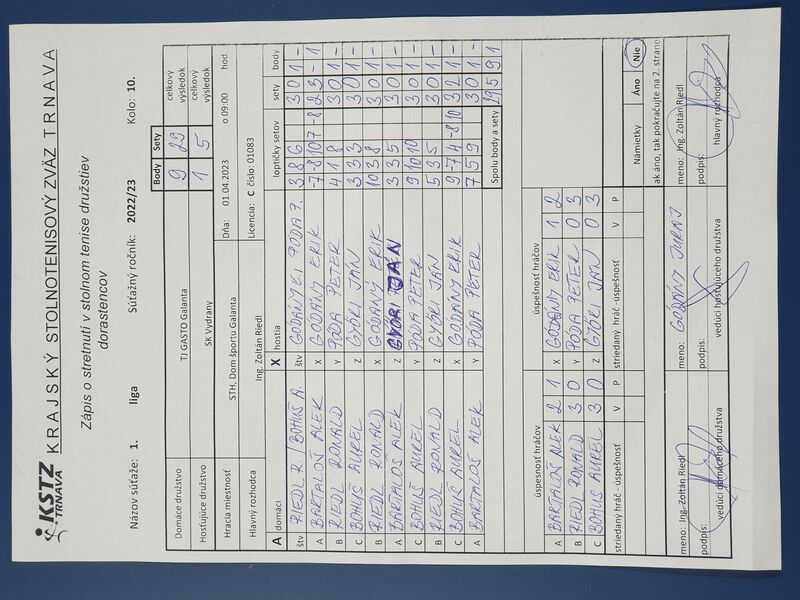 KSTZ
TRNAVA
KRAJSKÝ STOLNOTENISOVÝ ZVÄZ TRNAVA
Zápis o stretnutí v stolnom tenise družstiev
dorastencov
Názov súťaže: 1. liga Súťažný ročník: 2022/23 Kolo: 10.
Body Sety celkový výsledok celkový výsledok
Domáce družstvo TJ GASTO Galanta 9 29
Hosťujúce družstvo SK Vydrany 1 5
Hracia miestnosť STH, Dom športu Galanta Dňa: 01.04.2023 o 09:00 hod
Hlavný rozhodca Ing. Zoltán Riedl Licencia: C číslo: 01083
A domáci X hostia loptičky setov sety body
štv RIEDL R. / BOHUŠ A. štv GODÁNY E. / PÓDA P. 3 8 6 3 0 1 -
A BARTALOŠ ALEK X GODÁNY ERIK -7 -8 10 7 -8 2 3 - 1
B RIEDL RONALD Y PÓDA PETER 4 1 8 3 0 1 -
C BOHUŠ AUREL Z GYÖRI JÁN 3 3 3 3 0 1 -
B RIEDL RONALD X GODÁNY ERIK 10 3 8 3 0 1 -
A BARTALOŠ ALEK Z GYÖRI JÁN 3 3 5 3 0 1 -
C BOHUŠ AUREL Y PÓDA PETER 9 10 10 3 0 1 -
B RIEDL RONALD Z GYÖRI JÁN 5 3 5 3 0 1 -
C BOHUŠ AUREL X GODÁNY ERIK 9 -7 4 -8 10 3 2 1 -
A BARTALOŠ ALEK Y PÓDA PETER 7 5 9 3 0 1 -
Spolu body a sety 29 5 9 1
úspesnosť hráčov úspešnosť hráčov
A BARTALOŠ ALEK 2 1 X GODÁNY ERIK 1 2
B RIEDL RONALD 3 0 Y PÓDA PETER 0 3
C BOHUŠ AUREL 3 0 Z GYÖRI JÁN 0 3
striedaný hráč - úspešnosť V P striedaný hráč -úspešnosť V P
Námietky Áno Nie
ak áno, tak pokračujte na 2. strane
meno: Ing. Zoltán Riedl meno: GODÁNY JURAJ meno: Ing. Zoltán Riedl
podpis: podpis: podpis:
vedúci domáceho družstva vedúci hosťujúceho družstva hlavný rozhodca